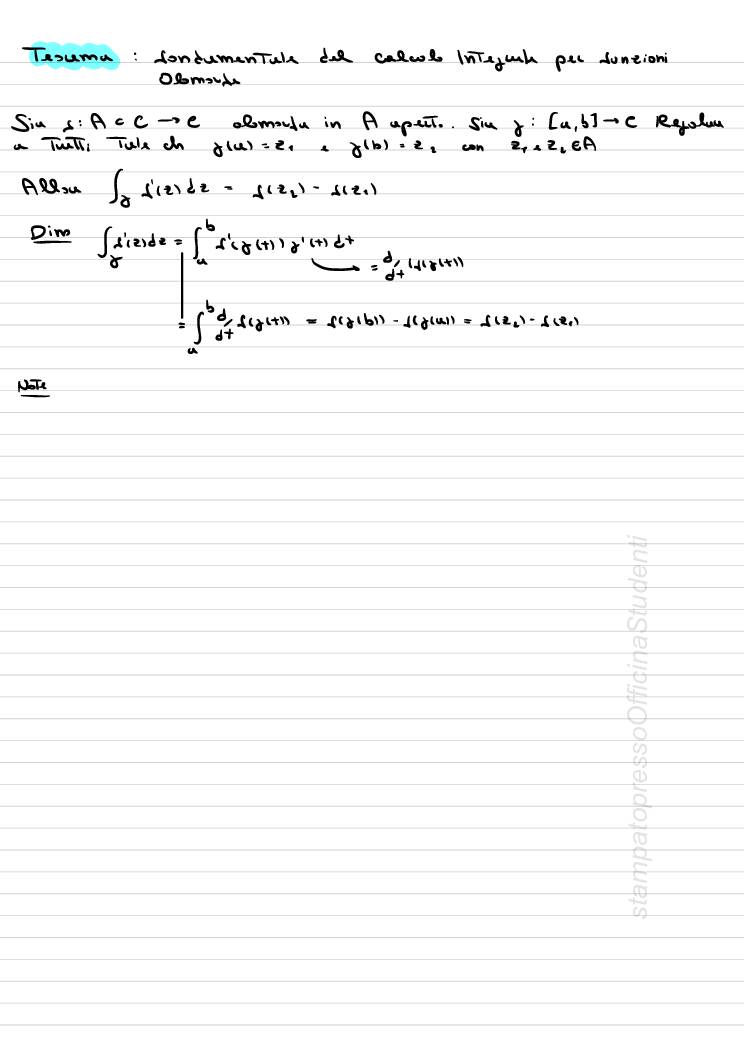 Teorema : fondamentale del calcolo Integrale per funzioni
Olomorfe
Sia f : A ⊂ C → C olomorfa in A aperto. Sia γ : [a,b] → C Regolare
a Tratti Tale che γ(a) = z₁ e γ(b) = z₂ con z₁ e z₂ ∈ A
Allora ∫_γ f'(z) dz = f(z₂) - f(z₁)
Dim ∫_γ f'(z) dz = ∫_a^b f'(γ(t)) γ'(t) dt
= d/dt (f(γ(t))
= ∫_a^b d/dt f(γ(t)) = f(γ(b)) - f(γ(a)) = f(z₂) - f(z₁)
Note
stampatopressoOfficinaStudenti